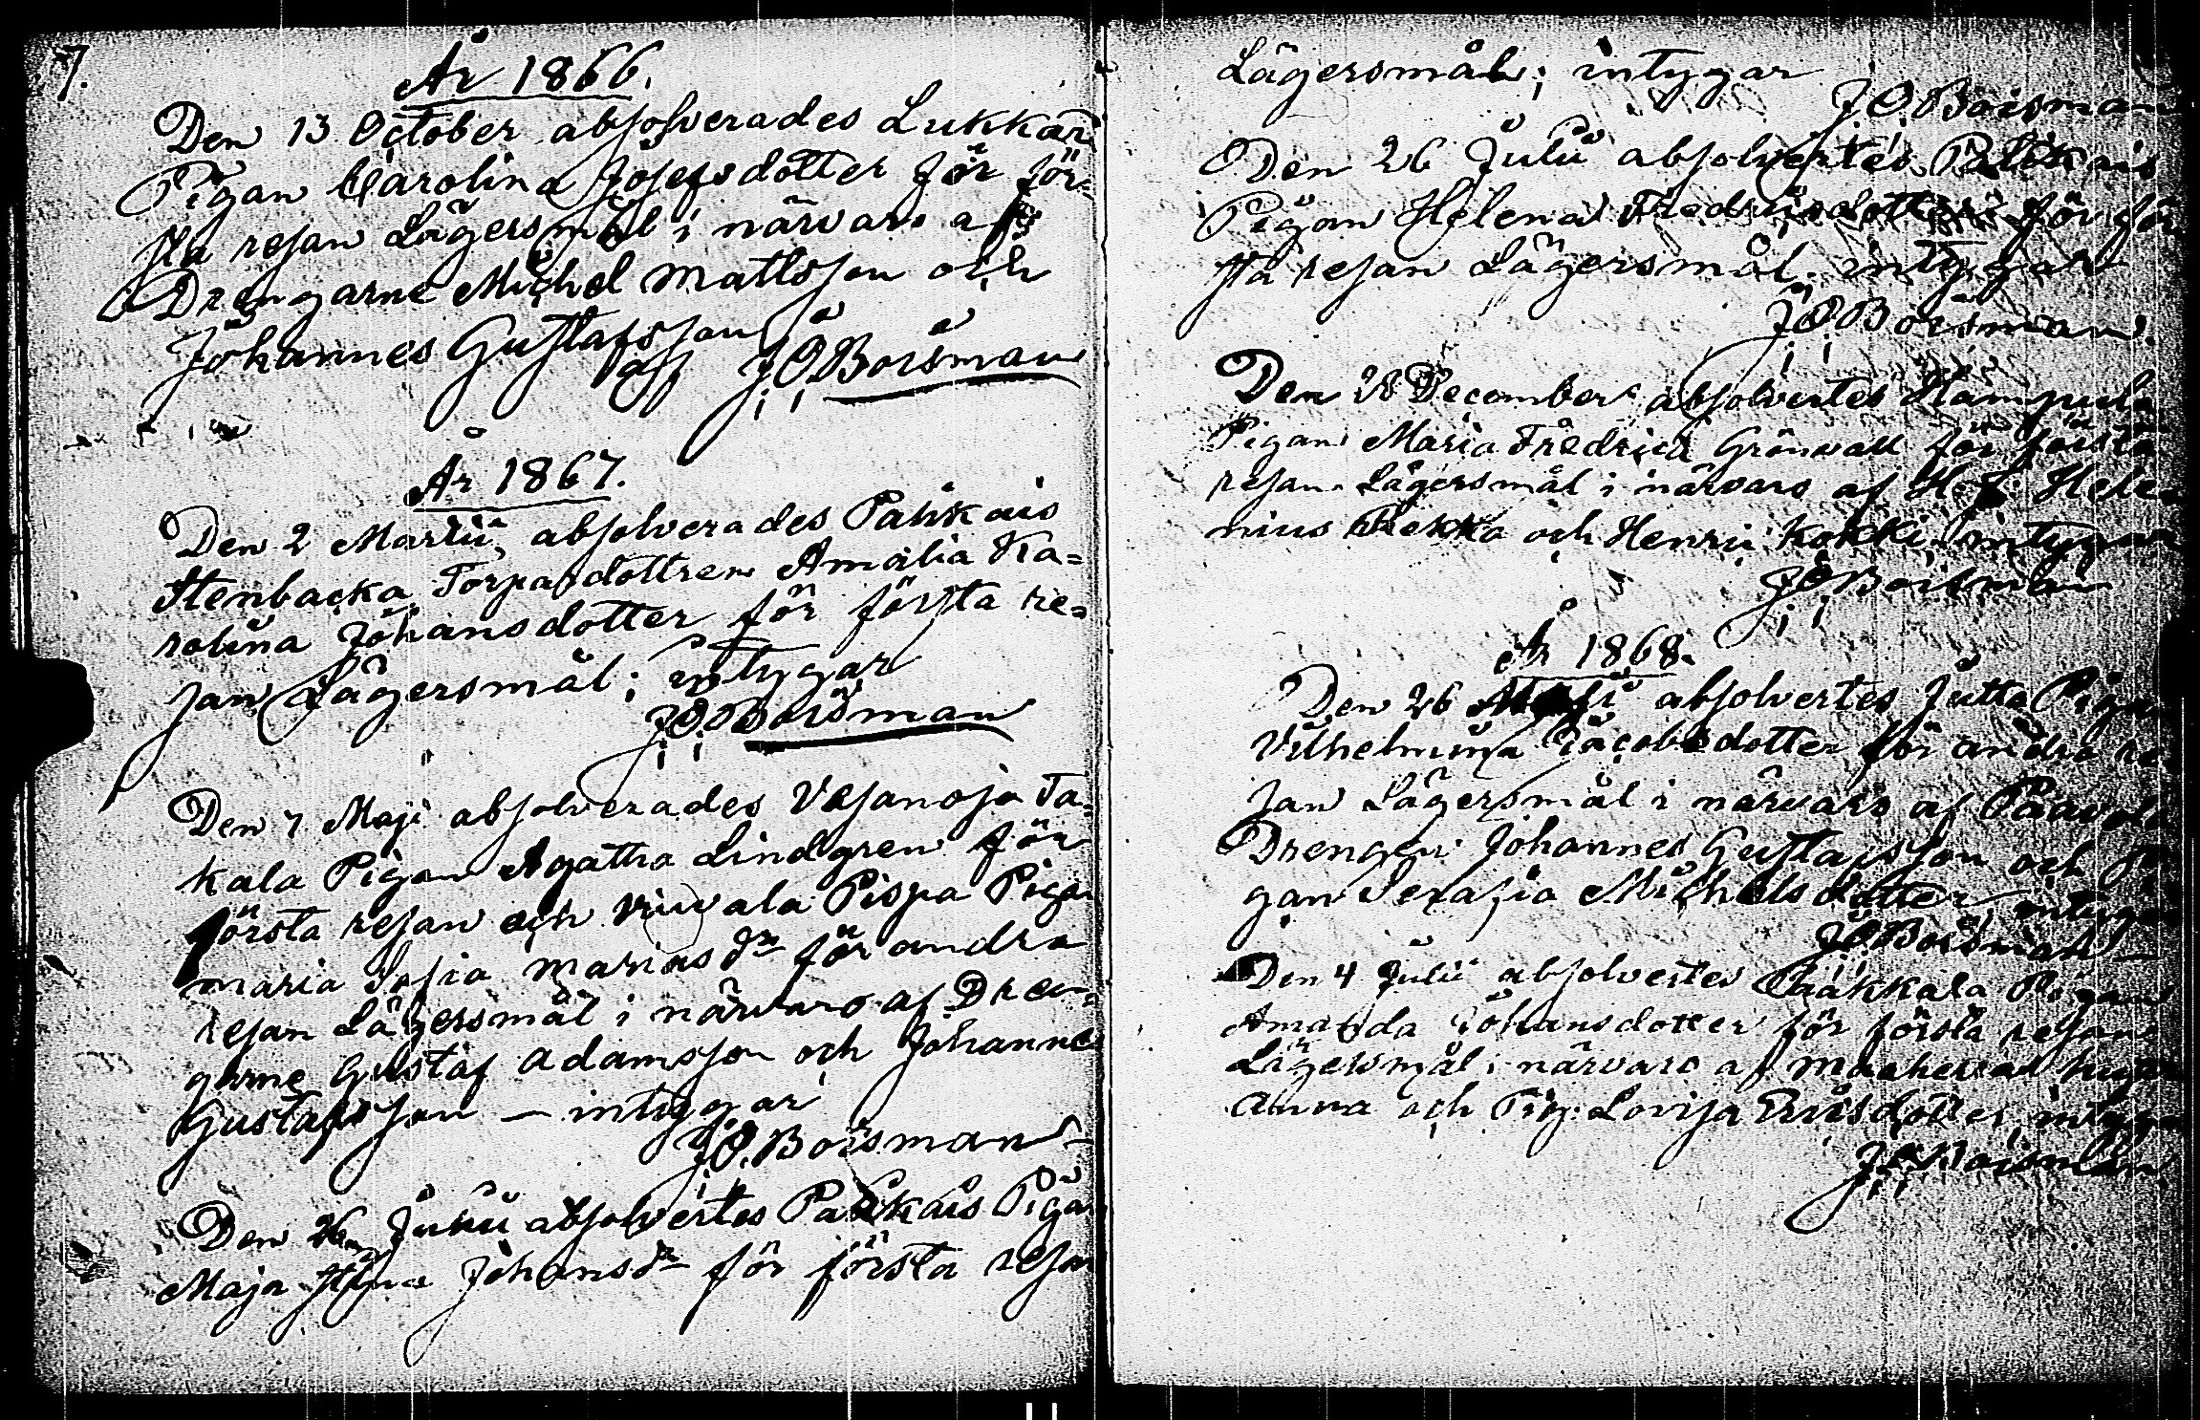 7.
År 1866.
Den 13 October absolverades Lukkari
Pigan Carolina Josefsdotter för för-
sta resan Lägersmål i närvaro af
Drengarne Michel Mattsson och
Johannes Gustafsson
af J O Boisman
År 1867.
Den 2 Martii absolverades Pahkais
Stenbacka Torpardottren Amalia Ka=
rolina Johansdotter för första re=
san Lägersmål; intygar
J O Boisman
Den 7 Maji absolverades Vesanoja Ta=
kala Pigan Agatha Lindgren för
första resan och Pispa Pigan
Maria Sofia Mariasdr för andra
resan Lägersmål i närvaro af Dren-
garne Gustaf Adamsson och Johannes
Gustafsson — intygar
J O Boisman
Den 26 Junii absolvertes Pahkais Pigan
Maja Stina Johansdr för första resan
Lägersmål; intygar
J O Boisman
Den 26 Julii absolvertes Pahkais
Pigan Helena Fredriksdotter för för
sta resan Lägersmål. intygar
J O Boisman.
Den 28 December absolvertes
Pigan Maria Fredrica Grönvall för första
resan Lägersmål i närvaro af Hele-
nius och Henric Kokki, intygar
J O Boisman
År 1868.
Den 26 absolvertes Jutta Pigan
Vilhelmina Jacobsdotter för andra re-
san Lägersmål i närvaro af Paavola
Drengen Johannes Gustafsson och Pi-
gan Serafia Michelsdotter, intygar
J O Boisman
Den 4 Julii absolvertes Pigan
Amanda Johansdotter för första resan
Lägersmål i närvaro af
Anna och Pig: Lovisa Ericsdotter, intygar
J O Boisman